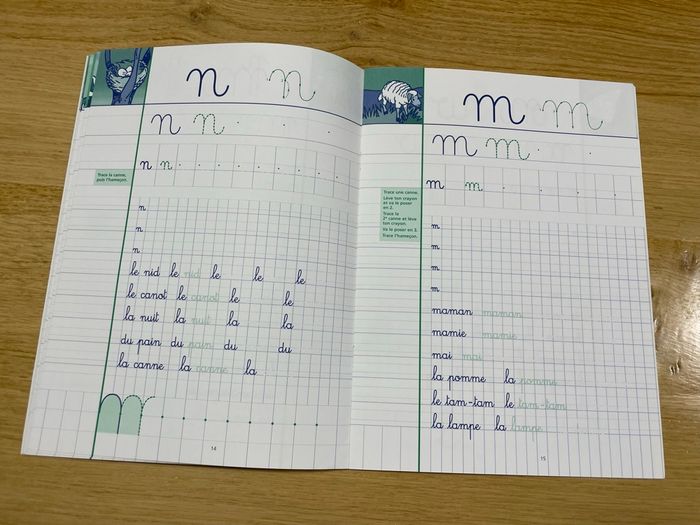 n n
n n
n n
Trace la canne,
puis l'hameçon.
n
n
n
le nid le nid le le le
le canot le canot le le
la nuit la nuit la la
du pain du pain du du
la canne la canne la
14
m m
m m
m m
Trace une canne.
Lève ton crayon
et va le poser
en 2.
Trace la
2e canne et lève
ton crayon.
Va le poser en 3.
Trace l'hameçon.
m
m
m
m
maman maman
mamie mamie
mai mai
la pomme la pomme
le tam-tam le tam-tam
la lampe la lampe
15